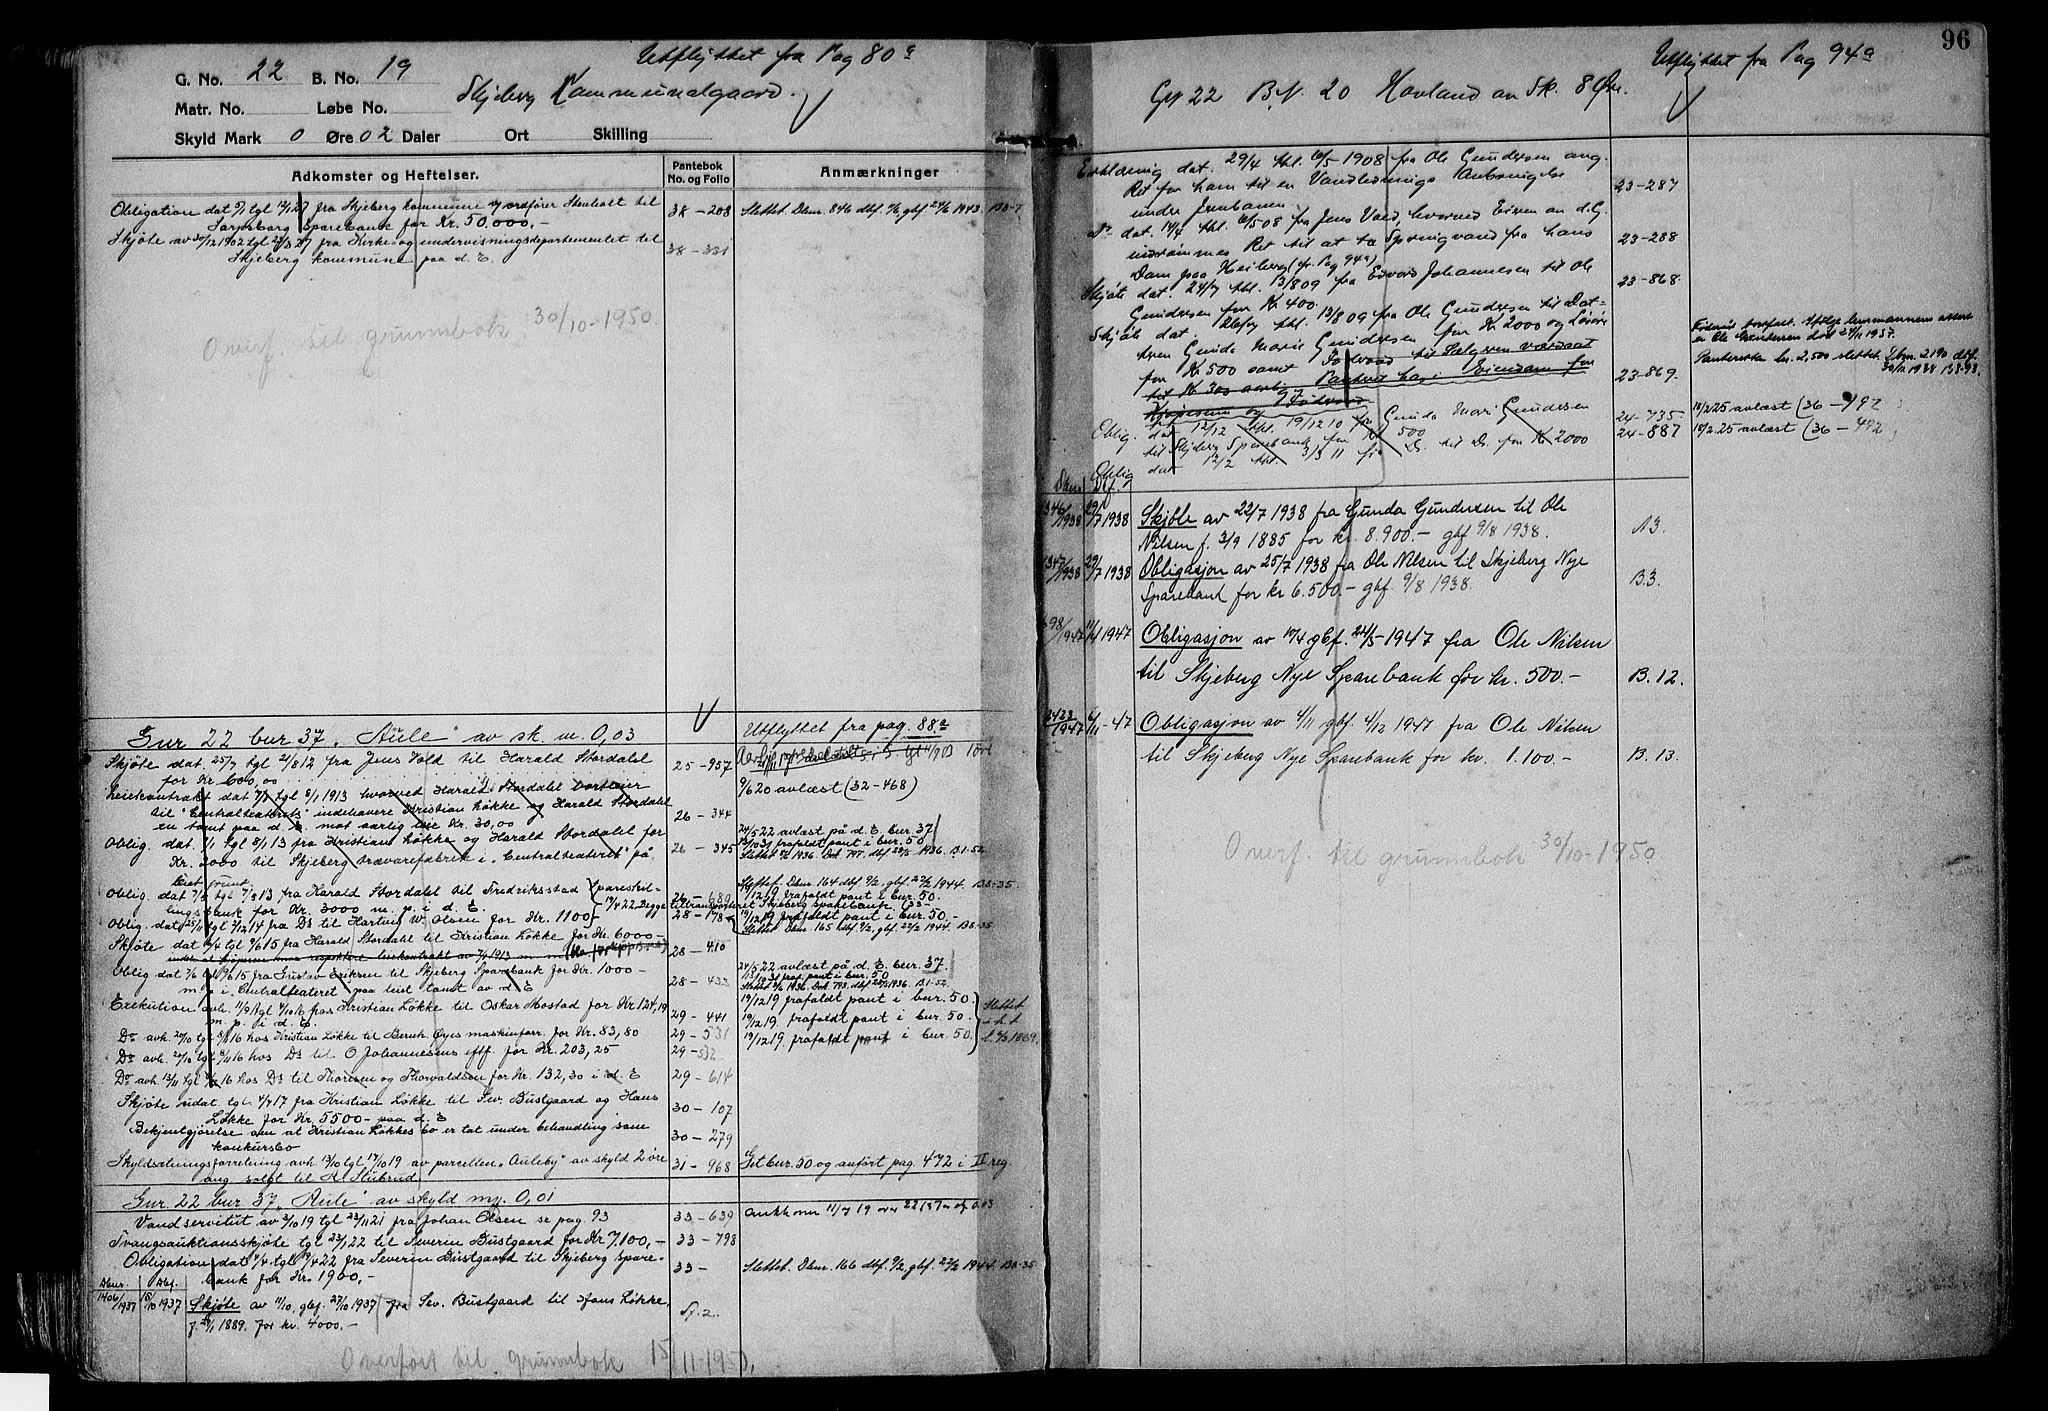 Utflyttet fra Pag 80a
G. No. 22 B. No. 19
Skjeberg Kommunalgaard.
Matr. No. Løbe No.
Skyld Mark 0 Øre 02 Daler Ort Skilling
Adkomster og Heftelser. Pantebok No. og Folio Anmærkninger
Obligation dat tgl fra Skjeberg kommune v/ ordfører Stenholt til 38-208 Slettet Dbnr. 846 dbf. gbf 1943. B8-7
Sarpsborg Sparebank for Kr. 50.000,-
Skjøte av 30/12 1902 tgl 27 fra Kirke- og undervisningsdepartementet til 38-331
Skjeberg kommune paa d. E.
Overf. til grunnbok 30/10-1950.
Gnr 22 bnr 37 „Aule" av sk. m. 0,03 Utflyttet fra pag. 88a
Skjøte dat. 25/7 tgl 21/8 12 fra Jens Vold til Harald Stordalel 25-957
for Kr 600,00
9/6 20 avlæst (32-468)
Leiekontrakt dat tgl 8/1 1913 hvorved Harald Stordalel bortleier
til "Centralteatrets" indehavere Kristian Løkke og Harald Stordalel 26-344
en tomt paa d. E. mot aarlig leie Kr. 30,00
Oblig. dat. tgl 8/1 13 fra Kristian Løkke og Harald Stordalel for 26-345 24/5 22 avlæst på d. E. bnr. 37
Kr. 2000 til Skjeberg trævarefabrik i „Centralteatret" på frafaldt pant i bnr. 50
leiet grund
Oblig dat 13 fra Harald Stordalel til Fredriksstad Slettet. Dbnr. 164 dbf. 9/2, gbf. 22/2 1944. B8-35
bank for Kr. 3000 m. p. i d. E. 19/12 19 frafaldt pant i bnr. 50.
Oblig. dat 25/11 tgl 12/12 14 fra Ds til Hartvig W. Olsen for Kr. 1100 28-178 19/12 19 frafaldt pant i bnr. 50.-
Slettet Dbnr. 165 dbf. 9/2, gbf. 22/2 1944. B8-35
Skjøte dat tgl 9/6 15 fra Harald Stordalel til Kristian Løkke for Kr. 6000- 28-410
Oblig dat tgl 9/6 15 fra Gustav Eriksen til Skjeberg Sparebank for Kr. 1000- 28-432 24/5 22 avlæst på d. E. bnr. 37.
m. p. i „Centralteatret" paa leiet tomt av d. E
Exekution avh. tgl 16 hos Kristian Løkke til Oskar Mostad for Kr. 124,19 29-441 19/12 19 frafaldt pant i bnr. 50
m. p. i d. E. 19/12 19. frafaldt pant i bnr. 50.
Do avh. 20/10 tgl 16 hos Kristian Løkke til Bernh. Øyes maskinforr. for Kr. 83,80 29-531 19/12 19. frafaldt pant i bnr. 50.
Do avh. 27/10 tgl 16 hos Ds til O Johannesens eftf. for Kr. 203,25 29-532
Do avh. 13/11 tgl 16 hos Ds til Thoresen og Thorvaldsen for Kr. 132,30 i d. E 29-614
Skjøte udat. tgl 17 fra Kristian Løkke til Sev. Bustgaard og Hans 30-107
Løkke for Kr. 5500- paa d. E
Bekjentgjørelse om at Kristian Løkkes bo er tat under behandling som 30-279
konkursbo
Skyldsætningsforretning avh 13/10 tgl 17/10 19 av parcellen „Auleby" av skyld 2 øre 31-968 Set bnr. 50 og anført pag. 472 i II reg.
ang solgt til A. Stubrud
Gnr. 22 bnr 37 „Aule" av skyld m. 0,01
Vandservitut av 2/10 19 tgl 23/11 21 fra Johan Olsen se pag. 93 33-639
Tvangsauktionsskjøte tgl 23/1 22 til Severin Bustgaard for Kr 7.100,- 33-798
Obligation dat 4/4 tgl 19/4 22 fra Severin Bustgaard til Skjeberg spare- 33- Slettet. Dbnr. 166 dbf. 9/2, gbf. 22/2 1944. B8-35
bank for Kr. 1900,-
Dbnr. Dbf.
1406/1937 15/10 1937 Skjøte av 11/10, gbf. 27/10 1937 fra Sev. Bustgaard til Hans Løkke,
1889. for kr. 4000.-
Overført til grunnbok 15/11-1950.
96
Utflyttet fra Pag 94a
Gr 22 B.N. 20 Havland av Sk. 8 Øre.
Erklæring dat. 29/4 thl. 6/5 1908 fra Ole Gundersen ang. 23-287
Ret for ham til en Vandlednings Anbringelse
under Jernbanen
Do dat. thl. 6/5 08 fra Jens Vold, hvorved Eieren av d. G. 23-288
indrømmes Ret til at ta Springvand fra hans
Dam paa Heiberg (cfr. Pag 94a)
Skjøte dat. 24/7 thl. 13/8 09 fra Edvard Johannesen til Ole 23-868
Gundersen for Kr 400.
Skjøte dat. 26/7 thl. 13/8 09 fra Ole Gundersen til Dat-
teren Gunda Marie Gundersen for Kr 2000 og Løsøre 23-869.
for Kr 500 samt Føderaad til Sælgeren værdsat
til Kr 300 aarlig Panteret bag i Eiendom for
Kjøpesum og Føderaad
er Ole Gundersen død 24/11 1937.
Panterette kr. 2,500 slettet. Dbnr. 2190 dbf. 1938 B3-93
Oblig. dat 12/12 thl. 19/12 10 fra Gunda Mari Gundersen 24-735. 10/2 25 avlæst (36-492)
til Skjeberg Sparebank for Kr 500 24-887 10/2 25 avlæst (36-492)
Oblig dat 12/2 thl. 3/3 11 fra Ds. til Ds. for Kr 2000
Dbnr Dbf.
1346/1938 29/7 1938 Skjøte av 22/7 1938 fra Gunda Gundersen til Ole A3.
Nilsen f. 3/9 1885 for kr. 8.900.- gbf 9/8 1938.
1347/1938 29/7 1938 Obligasjon av 25/7 1938 fra Ole Nilsen til Skjeberg Nye B.3.
Sparebank for kr 6.500.- gbf. 9/8 1938.
698/1947 11/4 1947 Obligasjon av 10/4 gbf. 22/5-1947 fra Ole Nilsen
til Skjeberg Nye Sparebank for kr. 500.- B.12.
2423/1947 6/11-47 Obligasjon av 4/11 gbf. 4/12 1947 fra Ole Nilsen
til Skjeberg Nye Sparebank for kr. 1.100.- B.13.
Overf. til grunnbok 30/10-1950.